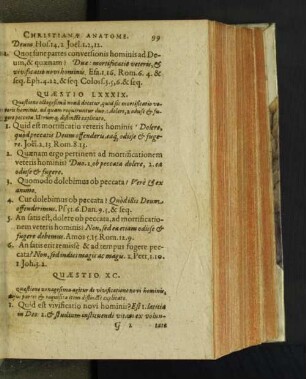 CHRISTIANÆ ANATOME. 99
Deum Hos. 14. 2. Joël. 2. 1, 12.
2. Quot sunt partes conversionis hominis ad De-
um, & quænam? Duæ: mortificatio veteris, &
vivificatio novi hominis, Esa. 1. 16. Rom. 6. 4. &
seq. Eph. 4. 22, & seq. Coloss. 3. 5, 6, & seq.
QUÆSTIO LXXXIX.
Quæstione octuagesimâ nonâ docetur, quid sit mortificatio ve-
teris hominis
1. Quid est mortificatio veteris hominis? Dolere,
quòd peccatis Deum offenderis, eaq́, odisse & fuge-
re. Joël. 2. 13 Rom. 8. 13.
2. Quænam ergo pertinent ad mortificationem
veteris hominis? Duo. 1, ob peccata dolere, 2. ea
odisse & fugere.
3. Quomodo dolebimus ob peccata? Verè & ex
animo.
4. Cur dolebimus ob peccata? Quòd illis Deum
offenderimus. Ps. 51. 6. Dan. 9. 5, & seq.
5. An satis est, dolere ob peccata, ad mortificatio-
nem veteris hominis? Non, sed ea etiam odisse &
fugere debemus. Amos 5. 15 Rom. 12. 9.
6. An satis est remissè & ad tempus fugere pec-
cata? Non, sed indies magis ac magis. 1. Petr. 1. 10.
1 Joh. 3. 2.
QUÆSTIO XC.
Quæstione nonagesimâ agitur de vivificatione novi hominis,
1. Quid est vivificatio novi hominis? Est 1. lætitia
in Deo 2. & studium instituendi vitam ex volun-
G 2 tate